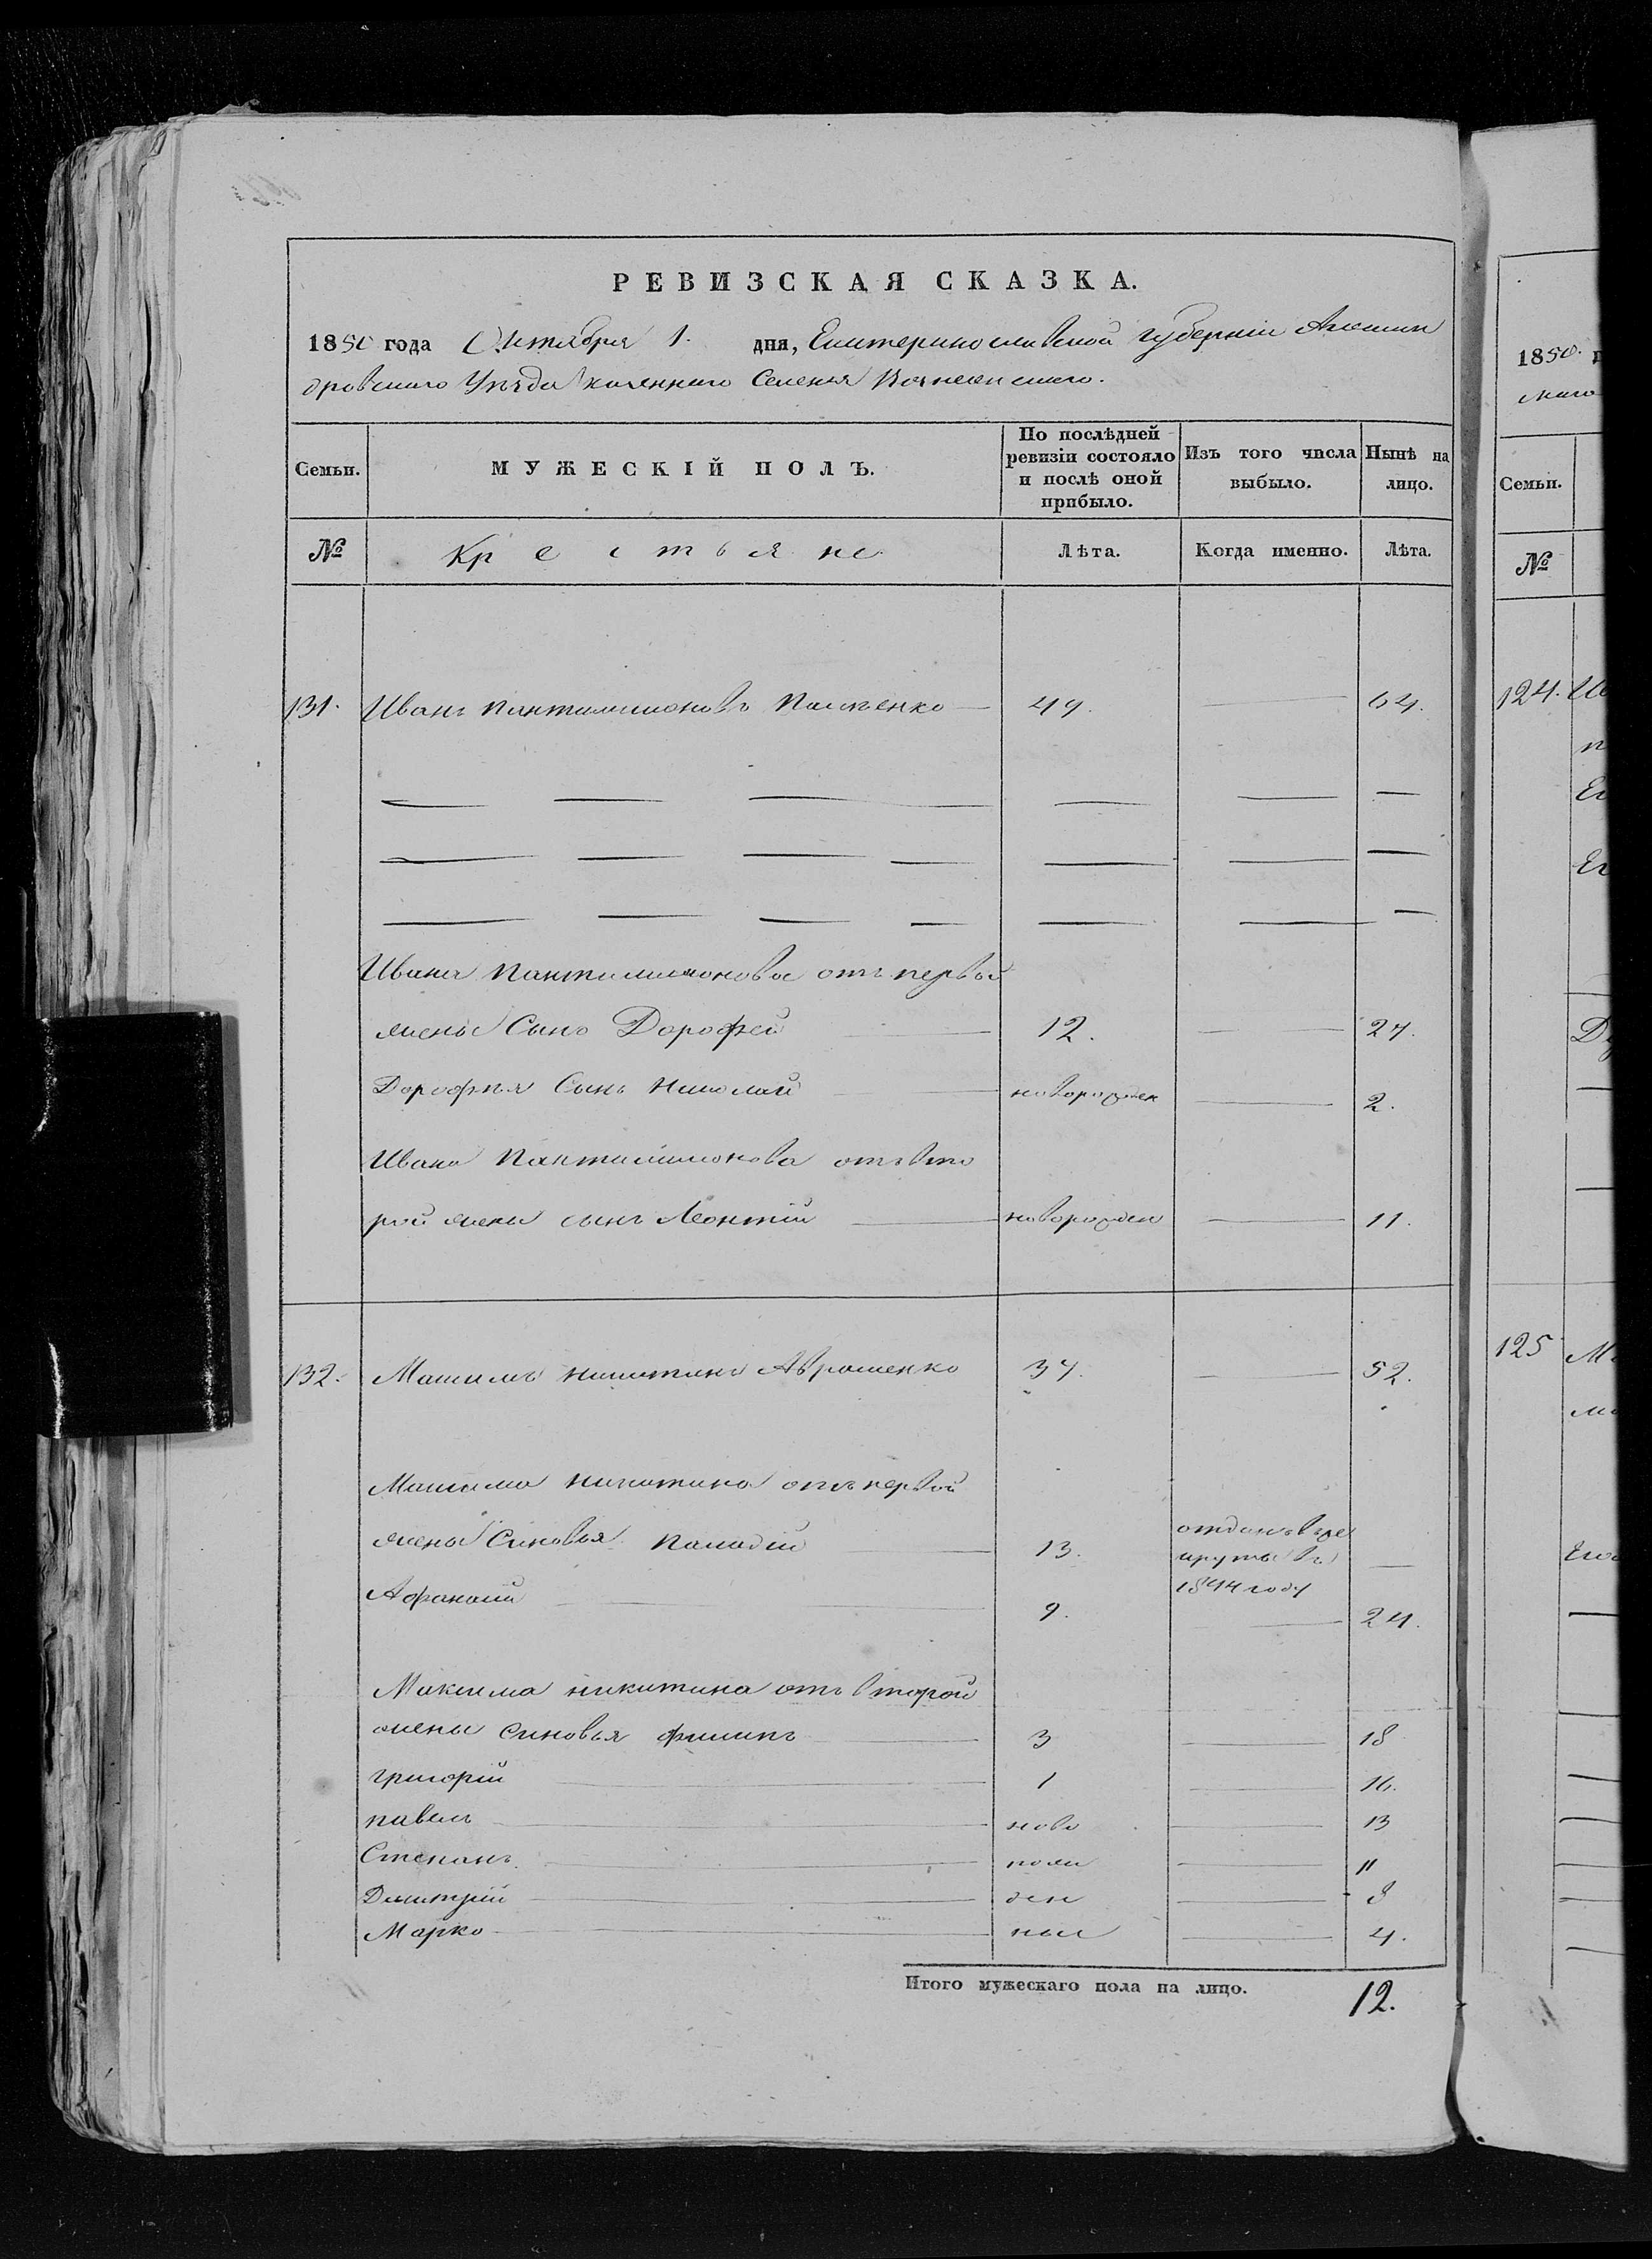 РЕВИЗСКАЯ СКАЗКА.
1850 года Октября 1. дня, Екатеринославской губерніи Алексан
дровскаго Уѣзда казеннаго Селенія Вознесенскаго.
Семьи.
МУЖЕСКІЙ ПОЛЪ.
По послѣдней ревизіи состояло и послѣ оной прибыло.
Изъ того числа выбыло.
Нынѣ на лицо.
№ Крестьяне Лѣта. Когда именно. Лѣта.
131. Иванъ Пантилимоновъ 49. 64.
Ивана Пантилимонова отъ первой
жены Сынъ Дорофей 12. 27.
Дорофѣя Сынъ Николай новорожден 2.
Ивана Пантилимонова отъ вто
рой жены сынъ Леонтій новорожден 11.
132. Максимъ Никитинъ Аврашенко 37. 52.
Максима Никитина отъ первой
жены Синовья Паладій 13. отданъ въ ре
круты въ
1844 году
Афанасій 9. 24.
Максима никитина отъ второй
жены синовья филипъ 3 18
григорій 1 16.
павелъ ново 13
Степанъ рож 11
Дмитрій ден 8
Марко ные 4.
Итого мужескаго пола на лицо. 12.
1850. г
скаго
Семьи.
№
124. Ив
п
Ег
Ег
125 Ма
Его